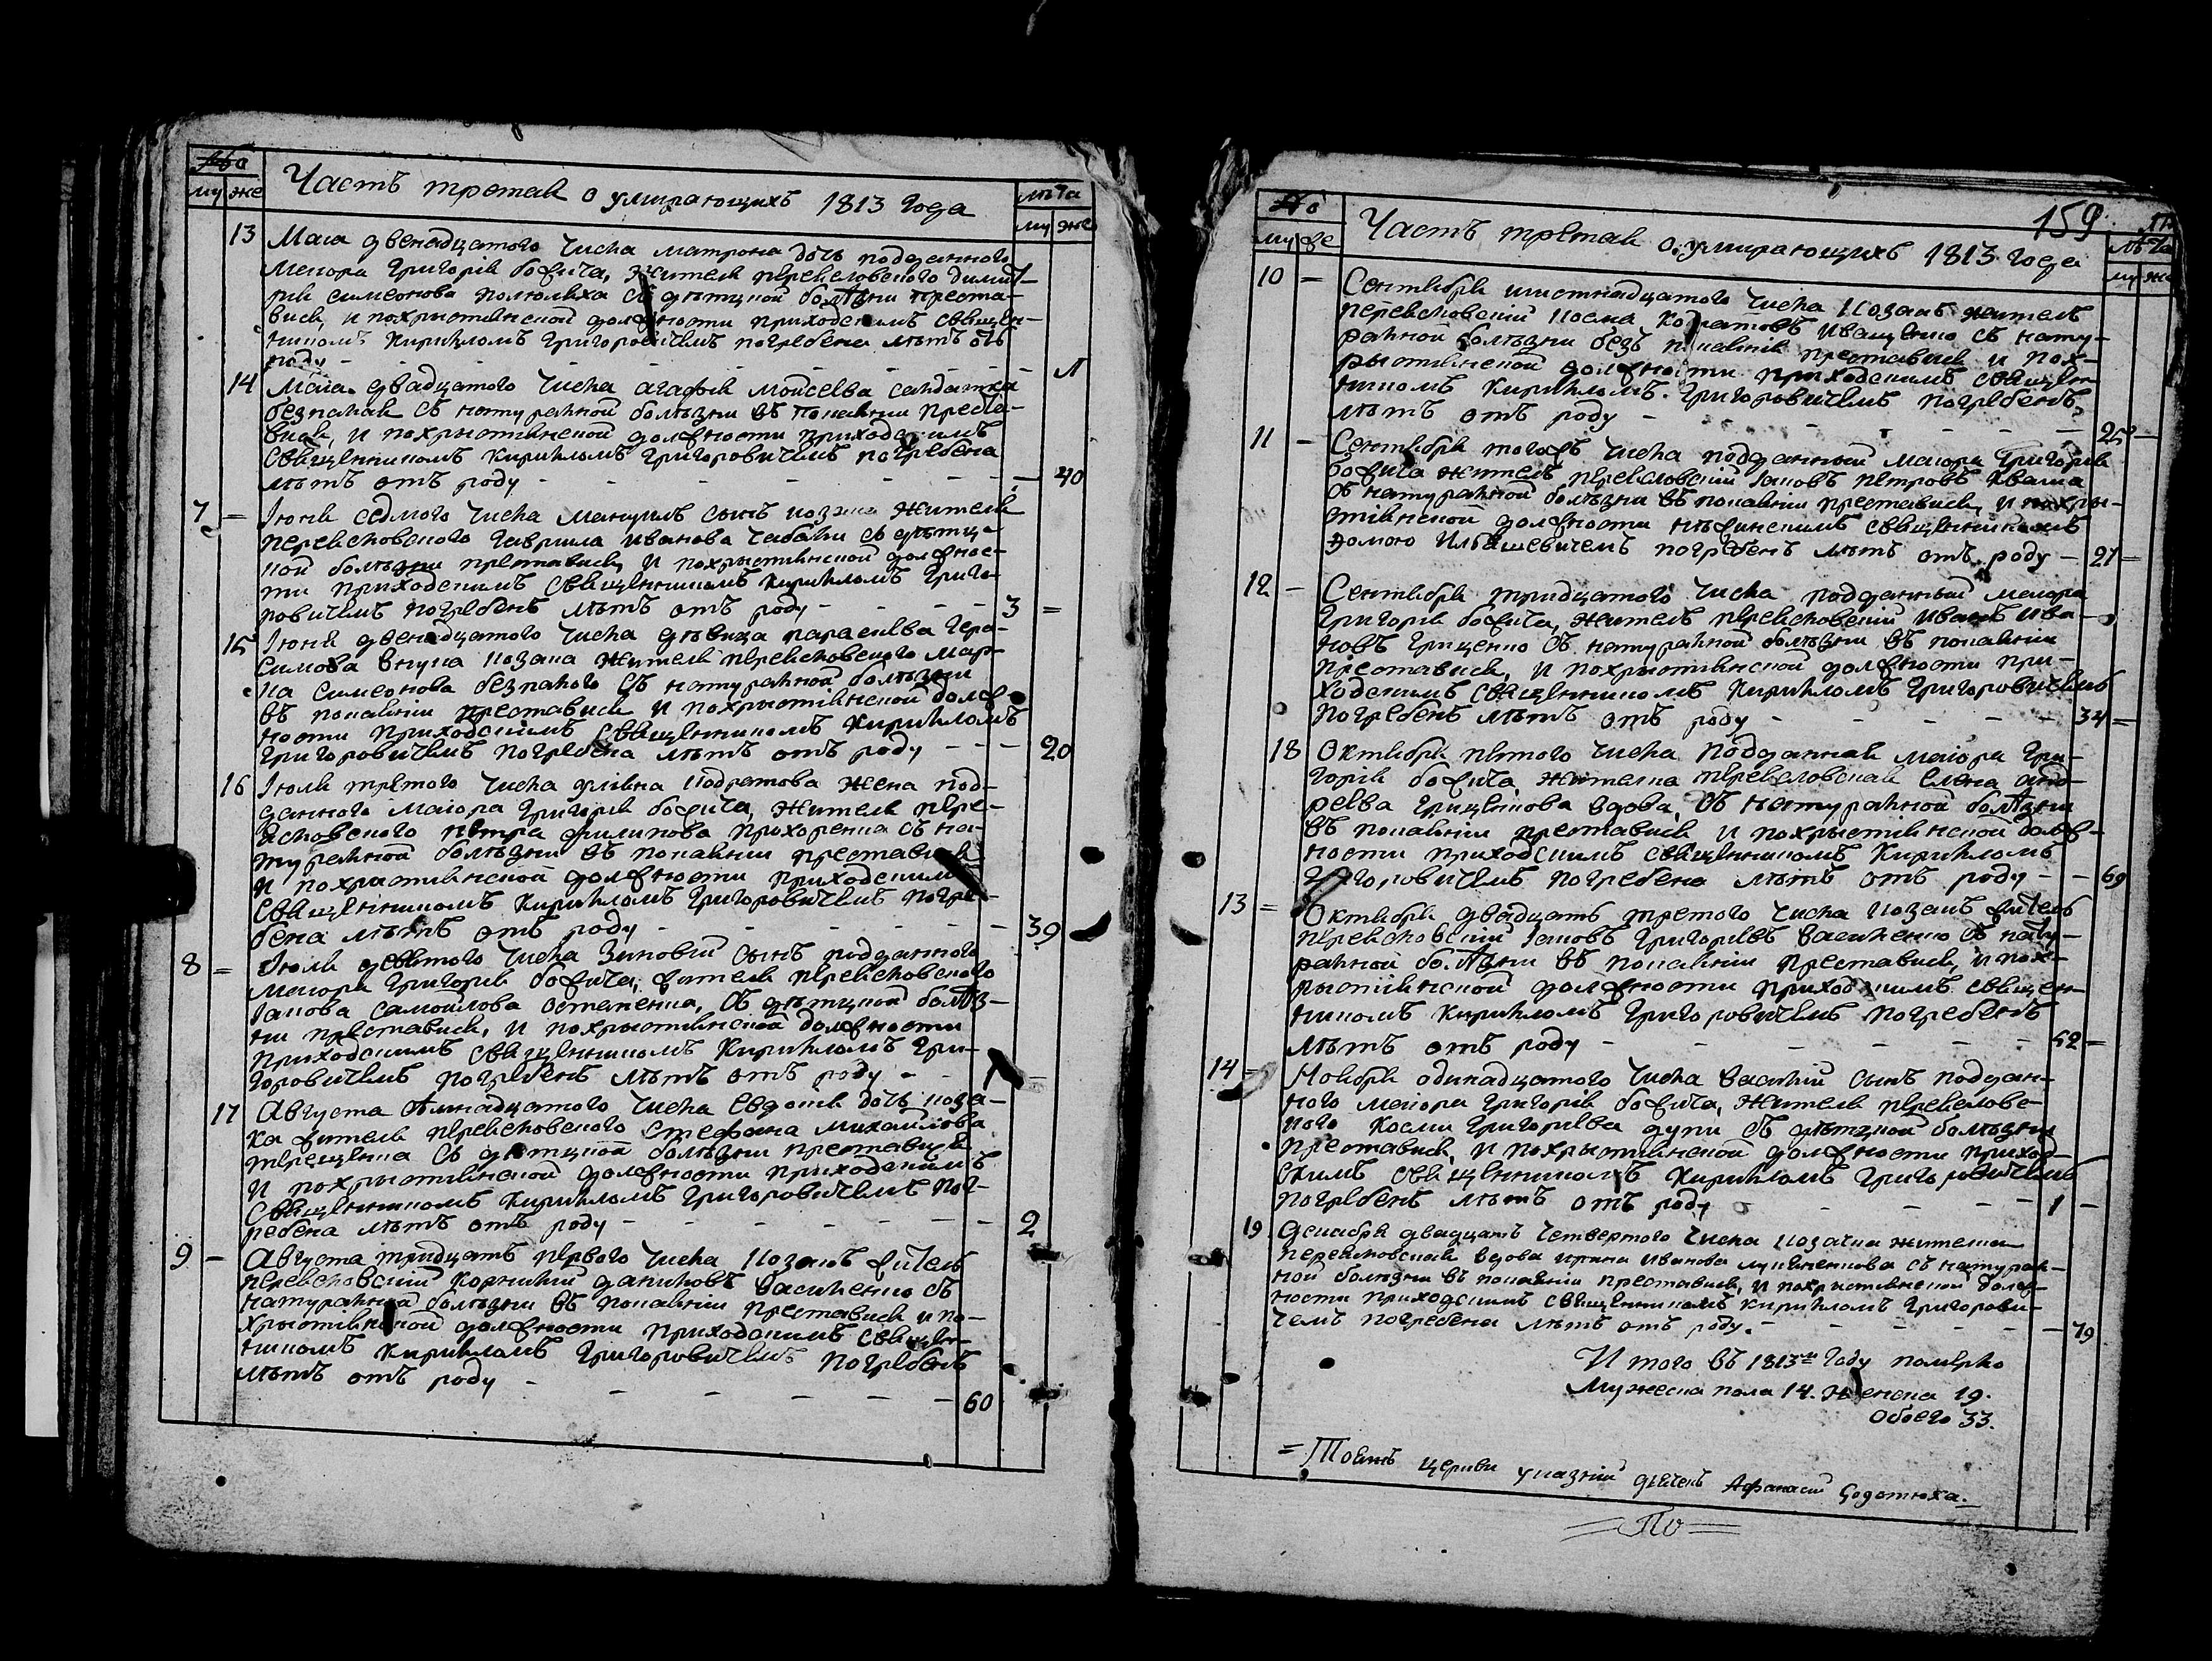 му же Часть третая о умирающихъ 1813 года лѣта
му же
13 Маiа двенадцатого числа матрона дочь подданного
Маiора Григорiя бофита, жителя переясловского димит-
рiя симеонова съ дѣтцкой болѣзни преста-
вися, и похрыстиянской должности приходскимъ священ-
никомъ Кириломъ Григоровичемъ погребена лѣтъ отъ
роду - - - 1
14 Маiа двадцатого числа агафiя Мойсеева салдатка
безпалая съ натуралной болѣзни въ покаянiи преста-
вися, и похрыстиянской должности приходскимъ
священникомъ Кириломъ Григоровичемъ погребена
лѣтъ отъ роду - - - 40
7 = Iюня седмого числа Мануилъ сынъ козака жителя
переясловского Гаврiила Иванова Чабана съ дѣтц-
кой болѣзни преставися, и похрыстиянской должнос-
ти приходскимъ священникомъ Кириломъ Григо-
ровичемъ погребенъ лѣтъ отъ роду - - - 3 =
15 Iюня двенадцатого числа дѣвица параскева Гера-
симова внука козака жителя переясловского Мар-
ка Симеонова безпалого съ натуралной болѣзни
въ покаянiи преставися и похрыстиянской долж-
ности приходскимъ священникомъ Кириломъ
Григоровичемъ погребена лѣтъ отъ роду - - - 20
16 Iюля третого числа улiяна Кодратова жена под-
данного Маiора Григорiя бофита, жителя пере-
ясловского петра филипова прохоренка съ на-
туралной болѣзни въ покаянiи преставися
и похрыстиянской должности приходскимъ
священникомъ Кириломъ Григоровичемъ погре-
бена лѣтъ отъ роду - - - 39
8 = Iюля девятого числа Зиновiй сынъ подданного
Маiора Григорiя бофита, жителя переясловского
Iакова самойлова остапенка, съ дѣтцкой болѣз-
ни преставися, и похрыстиянской должности
приходскимъ священникомъ Кириломъ Гри-
горовичемъ погребенъ лѣтъ отъ роду - - 1 =
17 Августа числа Евдокiя дочь коза-
ка жителя переясловского Стефана Михайлова
терещенка съ дѣтцкой болѣзни преставися
и похрыстиянской должности приходскимъ
священникомъ Кириломъ Григоровичемъ пог-
ребена лѣтъ отъ роду - - - 2
9 - Августа тридцать первого числа Козакъ житель
переясловскiй Корнилiй даниловъ Василенко съ
натуралной болѣзни въ покаянiи преставися и по-
хрыстиянской должности приходскимъ священ-
никомъ Кириломъ Григоровичемъ погребенъ
лѣтъ отъ роду - - - 60
159
му же Часть третая о умирающихъ 1813 года лѣта
му же
10 = Сентября шистнадцатого числа Козакъ житель
переясловскiй Косма Иващенко съ нату-
ралной болѣзни безъ покаянiя преставися и пох-
рыстиянской должности приходскимъ священ-
никомъ Кириломъ Григоровичемъ погребенъ,
лѣтъ отъ роду - - - 25 -
11 - Сентября тогожъ числа подданный Маiора Григорiя
бофита житель переясловскiй Iаковъ петровъ Кваша
съ натуралной болѣзни въ покаянiи преставися, и похры-
стиянской должности священникомъ
погребенъ лѣтъ отъ роду - 21 =
12 - Сентября тридцатого числа подданный Маiора
Григорiя бофита, житель переясловскiй Иванъ Ива-
новъ Грищенко съ натуралной болѣзни въ покаянiи
преставися, и похрыстиянской должности при-
ходскимъ священникомъ Кириломъ Григоровичемъ
погребенъ лѣтъ отъ роду - - - 34 =
18 Октября пятого числа подданная Маiора Гри-
горiя бофита, жителка переясловская Елена анд-
реева Грищенкова вдова, съ натуралной болѣзни
въ покаянiи преставися и похрыстиянской долж-
ности приходскимъ священникомъ Кириломъ
Григоровичемъ погребена лѣтъ отъ роду - - 69
13 = Октября двадцать третого числа Козакъ житель
переясловскiй Iаковъ Григорiевъ Василенко съ нату-
ралной болѣзни въ покаянiи преставися, и пох-
рыстиянской должности приходскимъ священ-
никомъ Кириломъ Григоровичемъ погребенъ
лѣтъ отъ роду - - - 52 -
14 = Ноября одинадцатого числа Василiй сынъ поддан-
ного Маiора Григорiя бофита, жителя переяслове-
кого Космы Григорiева дупи съ дѣтцкой болѣзни
преставися, и похрыстиянской должности приход-
скимъ священникомъ Кириломъ Григоровичемъ
погребенъ лѣтъ отъ роду - - - 1 -
19 Декабря двадцать четвертого числа козачка жителка
переясловская вдова ирина Иванова съ натурал-
ной болѣзни въ покаянiи преставися, и похрыстиянской долж-
ности приходскимъ священникомъ Кириломъ Григорови-
чемъ погребена лѣтъ отъ роду. - - - 79
Итого въ 1813м году померло
Мужеска пола 14. женска 19.
обоего 33.
= Тоеяжъ церкви указнiй дьячокъ Афанасiй
= По =